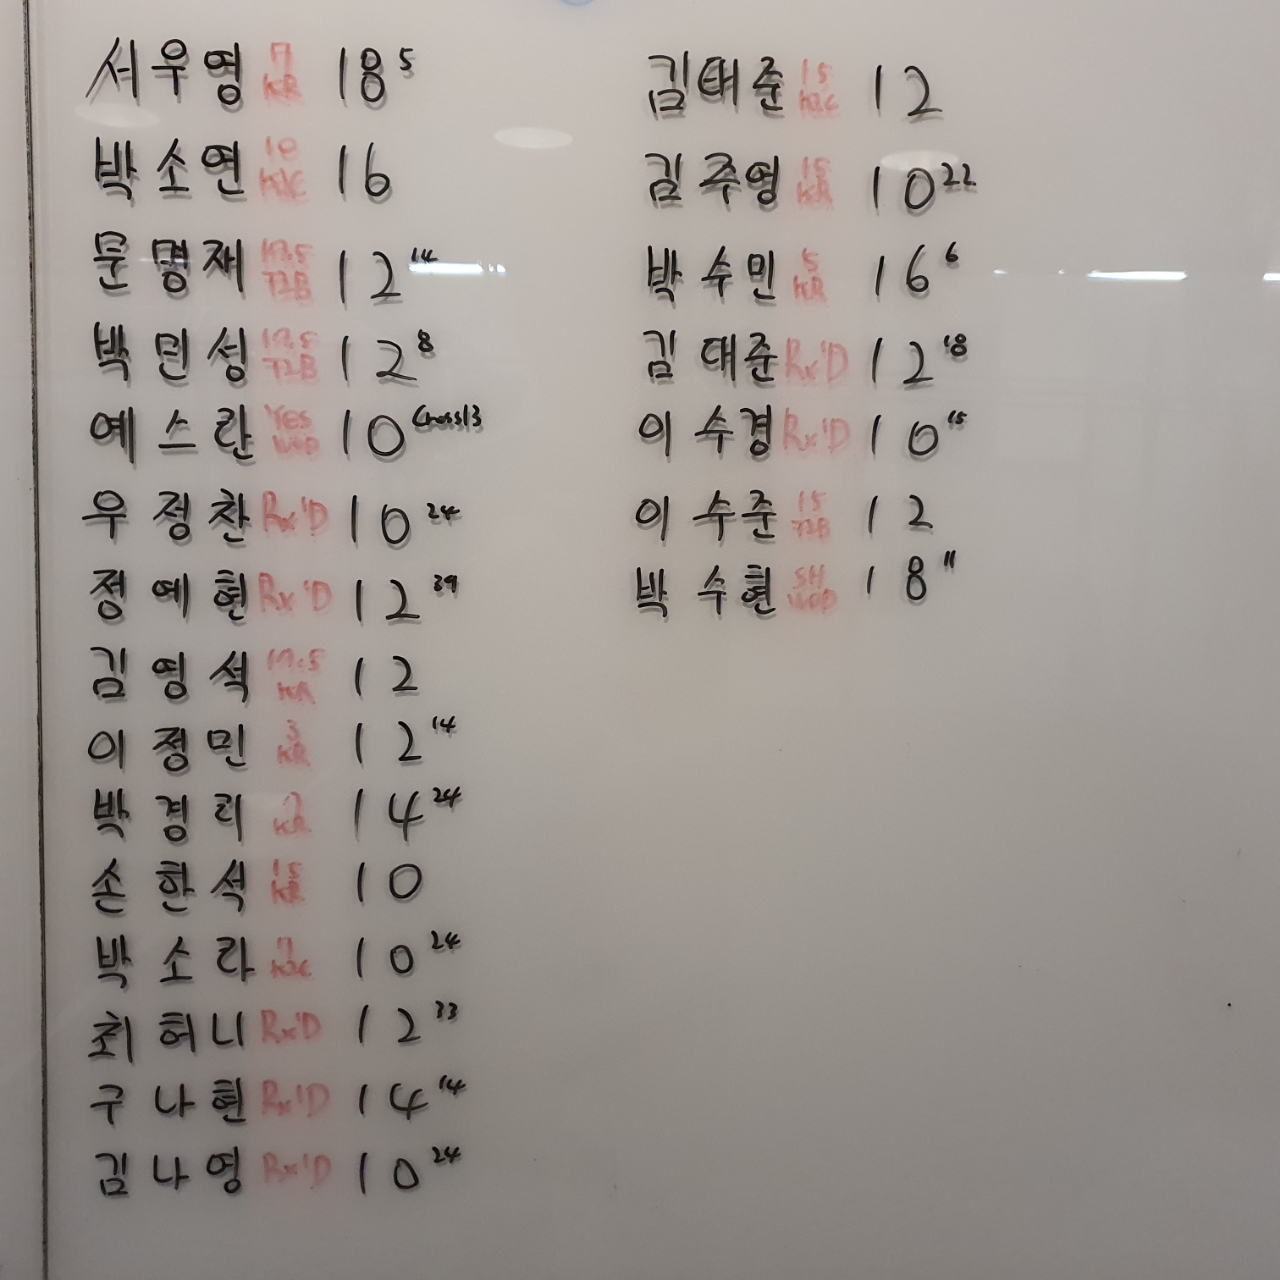 서우영 7 KR 18 5
박소연 10 16
문명재 17.5 72B 12 14
박민성 17.5 72B 12 8
예스란 Yes WOD 10 Cross13
우정찬 Rx'D 10 24
정예현 Rx'D 12 39
김영석 17.5 KR 12
이정민 3 KR 12 14
박경리 KR 14 24
손한석 15 KR 10
박소라 7 10 24
최허니 Rx'D 12 33
구나현 Rx'D 14 14
김나영 Rx'D 10 24
김태준 15 12
김주영 15 KR 10 22
박수민 5 KR 16 6
김대준 Rx'D 12 18
이수경 Rx'D 10 15
이수준 15 72B 12
박수현 SH WOD 18 11